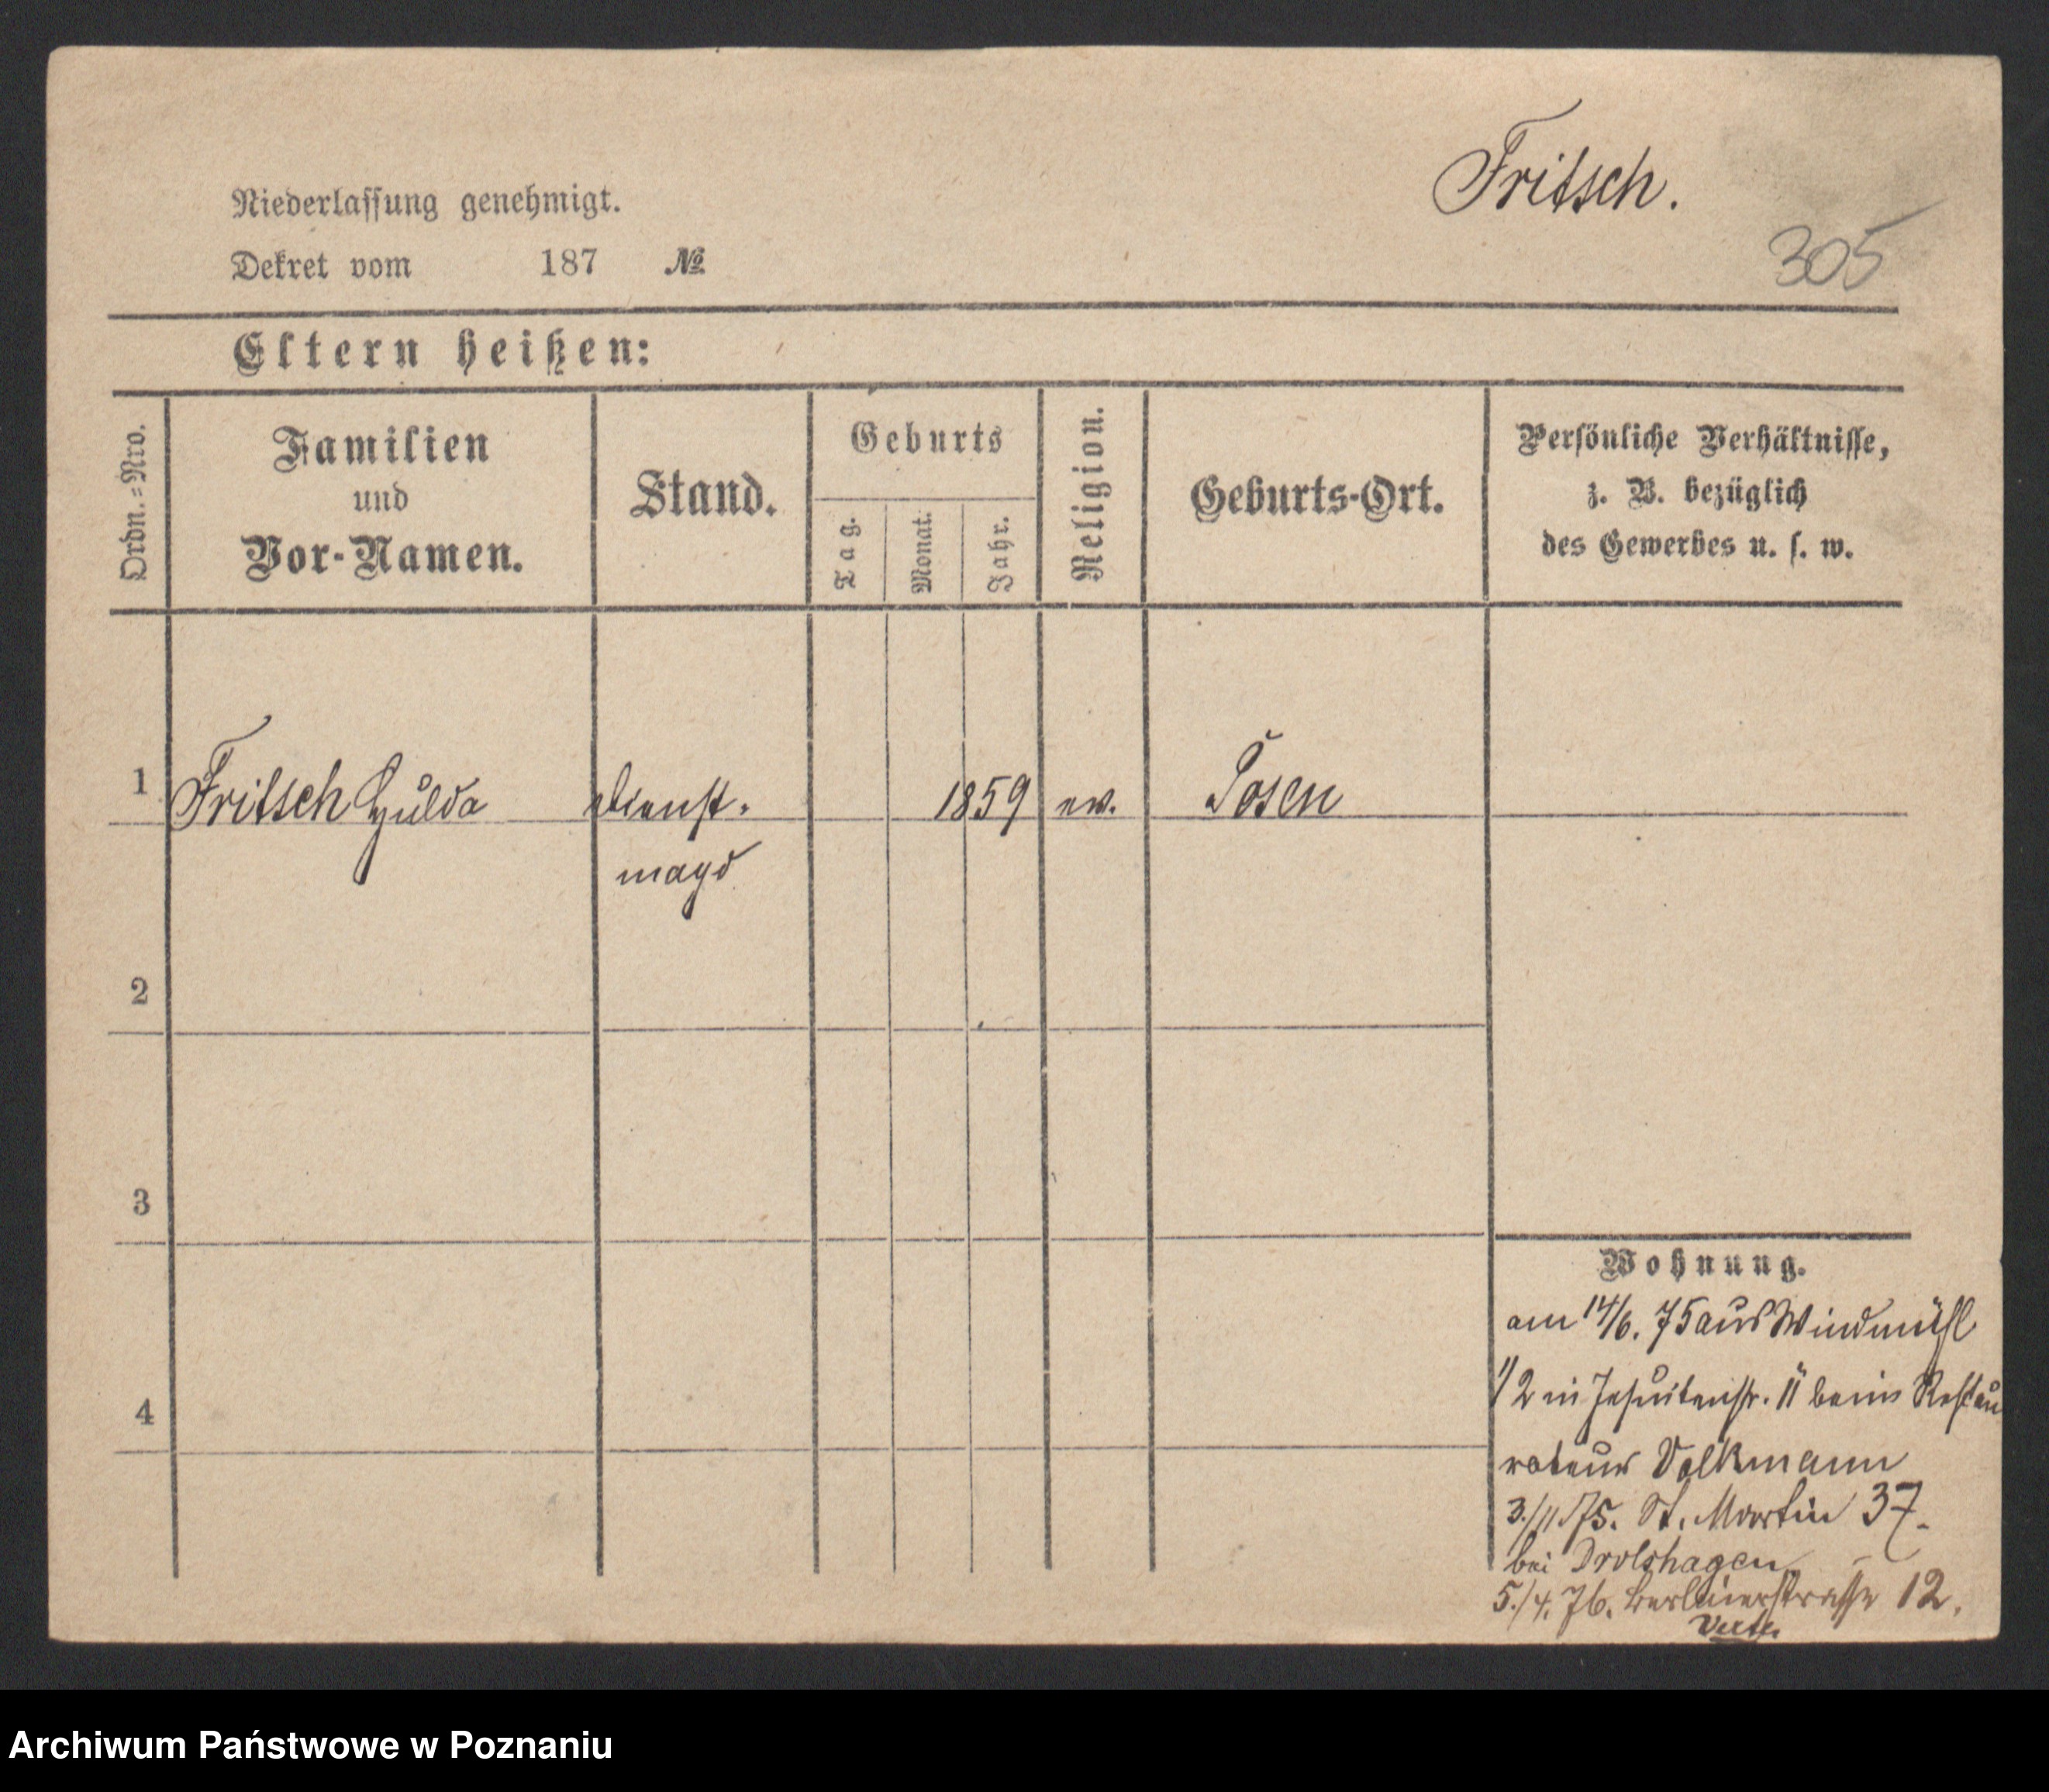 Fritsch.
305
Niederlassung genehmigt.
Dekret vom 187 №
Eltern heißen:
Ordn.=Nro.
Familien
und
Vor-Namen.
Stand.
Geburts
Tag.
Monat.
Jahr.
Religion.
Geburts-Ort.
Persönliche Verhältnisse,
z. B. bezüglich
des Gewerbes u. s. w.
1 Fritsch Hulda Dienst- 1859 ev. Posen
magd
2
3
4
Wohnung.
am 14/6. 75 aus Windmühl
1/2 in Jesuitenstr. 11 beim Restau
rateur Volkmann
3./11 75. St. Martin 37.
bei Drolshagen
5./4. 76. Berlinerstrasse 12.
Verte.
Archiwum Państwowe w Poznaniu